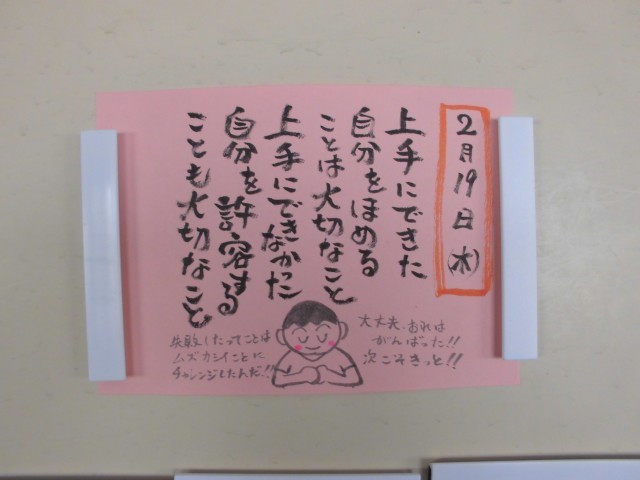 2月19日(水)
上手にできた
自分をほめる
ことは大切なこと
上手にできなかった
自分を許容する
ことも大切なこと
大丈夫、おれは
がんばった!!
次こそきっと!!
失敗したってことは
ムズカシイことに
チャレンジしたんだ!!